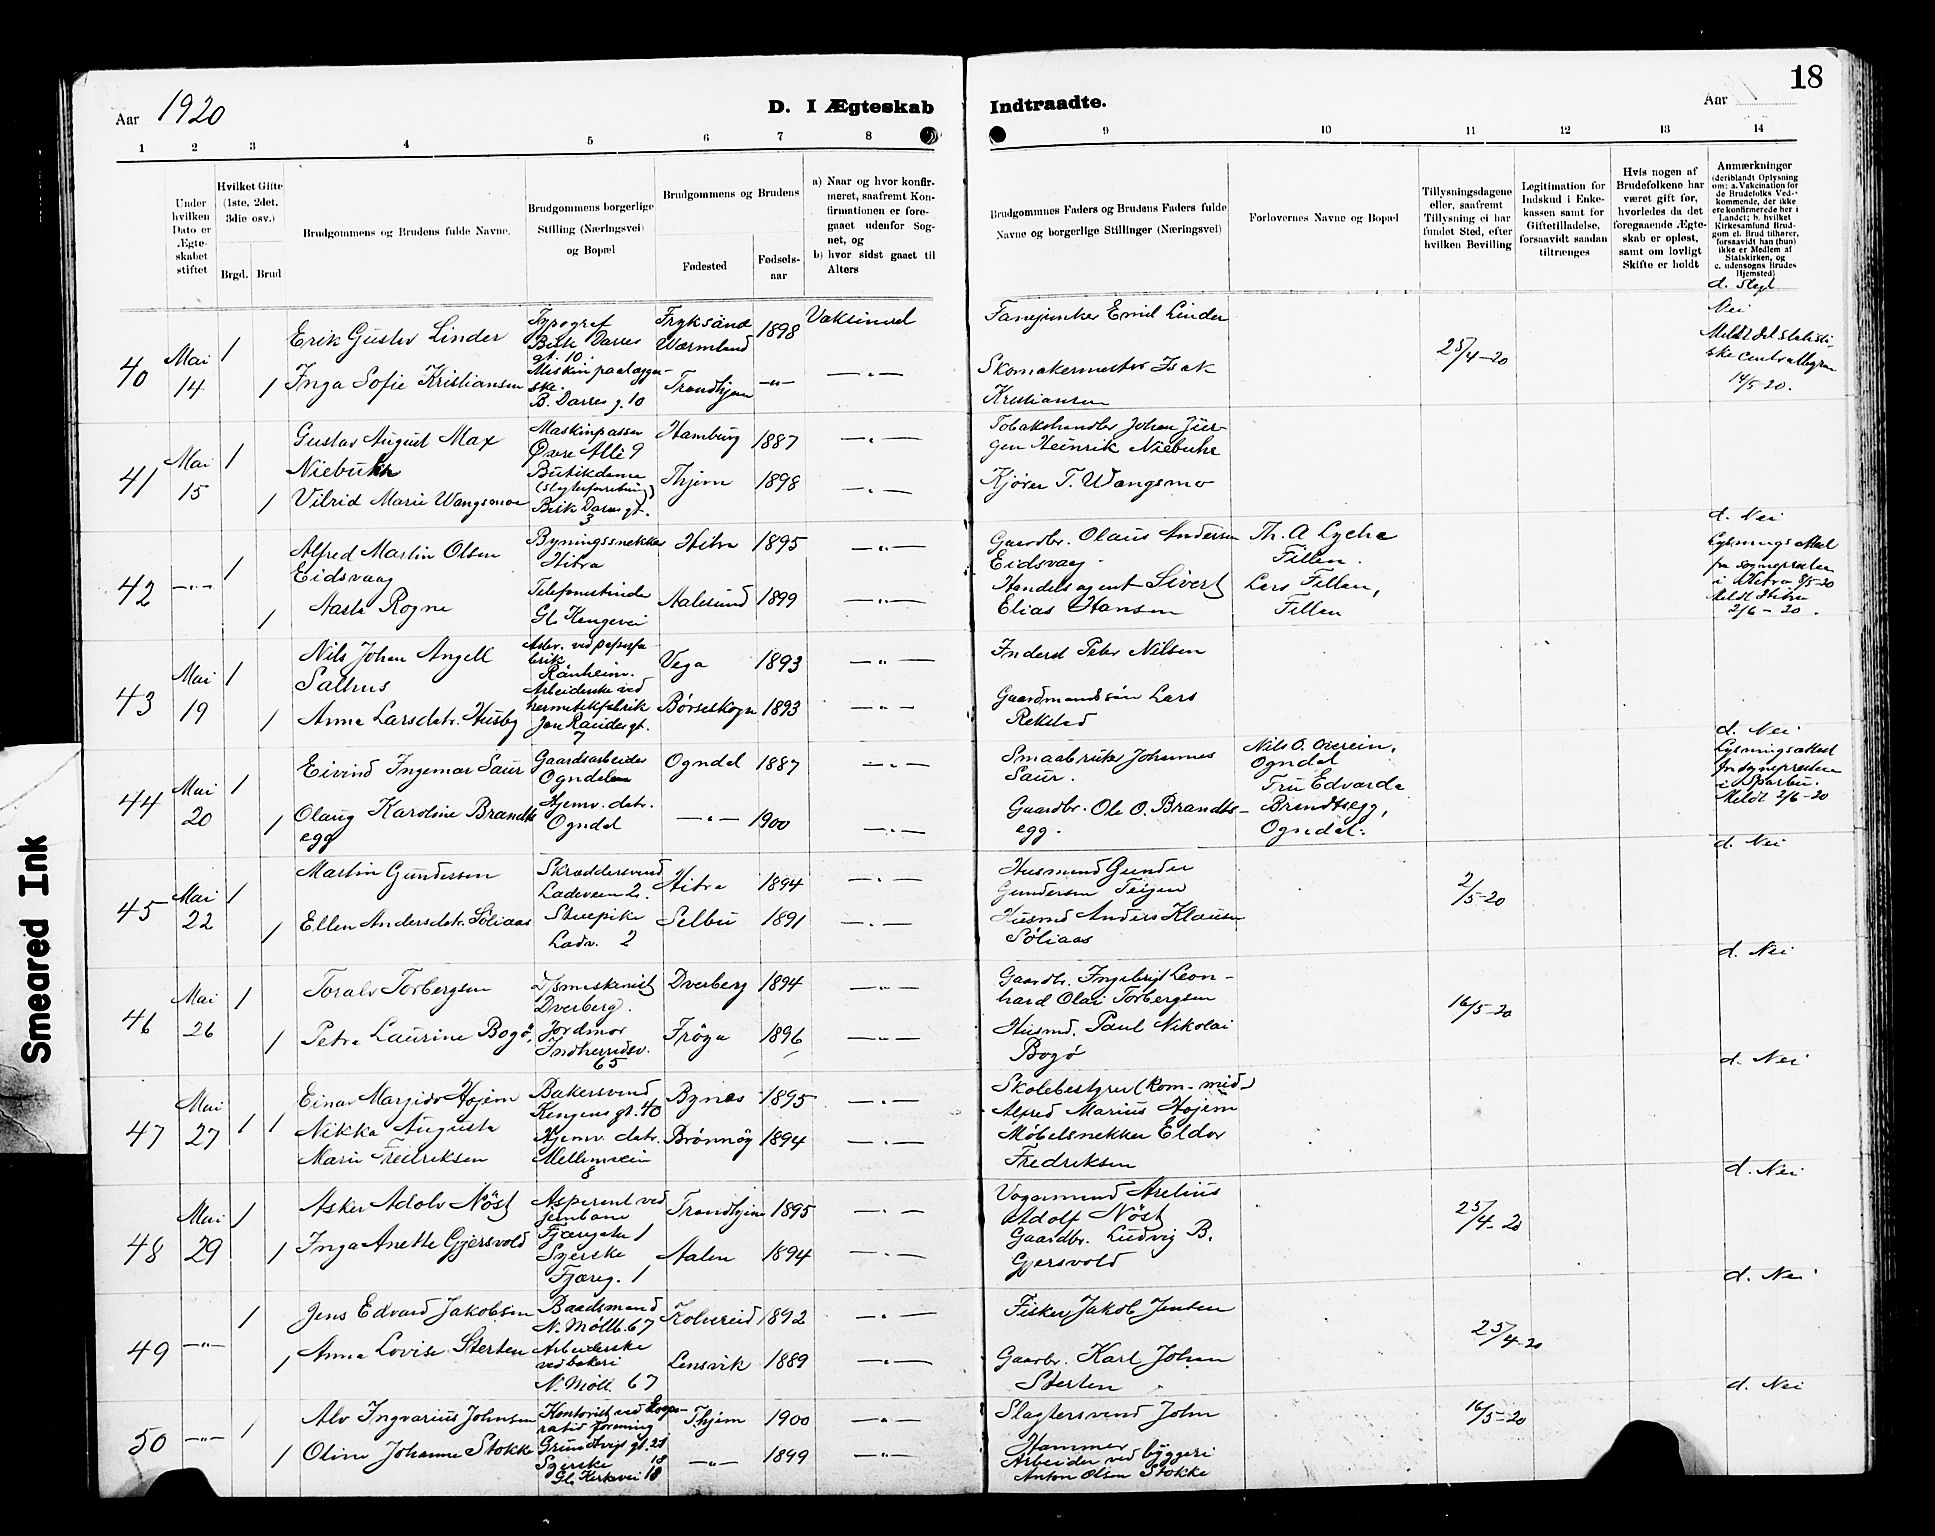 18
Aar 1920
D. I Ægteskab Indtraadte.
Aar
1 2 3 4 5 6 7 8 9 10 11 12 13 14
Under hvilken Dato er Ægteskabet stiftet
Hvilket Gifte (1ste, 2det, 3die osv.)
Brgd. Brud
Brudgommens og Brudens fulde Navne.
Brudgommens borgerlige Stilling (Næringsvei) og Bopæl
Brudgommens og Brudens
Fødested
Fødselsaar
a) Naar og hvor konfirmeret, saafremt Konfirmationen er foregaaet udenfor Sognet, og
b) hvor sidst gaaet til Alters
Brudgommnes Faders og Brudens Faders fulde Navne og borgerlige Stillinger (Næringsvei)
Forlovernes Navne og Bopæl
Tillysningsdagene eller, saafremt Tillysning ei har fundet Sted, efter hvilken Bevilling
Legitimation for Indskud i Enkekassen samt for Giftetilladelse, forsaavidt saadan tiltrænges
Hvis nogen af Brudefolkene har været gift før, hvorledes da det foregaaende Ægteskab er opløst, samt om lovligt Skifte er holdt
Anmærkninger (deriblandt Oplysning om: a. Vakcination for de Brudefolks Vedkommende, der ikke ere konfirmerede her i Landet; b. hvilket Kirkesamfund Brudgom el. Brud tilhører, forsaavidt han (hun) ikke er Medlem af Statskirken, og c. udensogns Brudes Hjemsted)
d. Slegt
40 Mai 14 1 Erik Gustav Linder
Typograf
Bisk Darres gt. 10
Fryksände Wærmland 1898
Vaksineret
Fanejunker Emil Linder
25/4-20
Nei
Meldt det statistiske centralbyraa
14/5-20.
1 Inga Sofie Kristiansen
B. Darres g. 10
Trondhjem -"- -"-
Skomakermester Isak
Kristiansen
41 Mai 15 1 Gustav August Max
Niebuhr
Maskinpasser
Øvre Allé 9
Hamburg 1887 -"-
Tobakshandler Johan Jürgen Heinrik Niebuhr
1 Vilrid Marie Wangsmoe
Butikdame
Bisk Darres gt. 3
Thjem 1898 -"-
Kjører T. Wangsmo
d. Nei
42 -"- 1 Alfred Martin Olsen
Eidsvaag
Bygningssnekker
Hitra
Hitra 1895 -"-
Gaardbr. Olaus Andersen
Eidsvaag
Th. A Lyche
Fillan.
Lysningsattest
fra sognepresten
i Hitra 9/5-20
Meldt Hitra
2/6-20.
1 Aasta Rogne
Telefonistinde
Gl. Kongevei
Aalesund 1899 -"-
Handelsagent Sivert
Elias Hansen
Lars Fillan,
Fillan
43 Mai 19 1 Nils Johan Angell
Salhus
Arb. ved papirfabrik
Ranheim.
Vega 1893 -"-
Inderst Peter Nilsen
1 Anna Larsdatr. Husby
Arbeiderske ved
hermetikfabrik
Jon Raudes gt. 7
Børseskogn 1893 -"-
Gaardmandssøn Lars
Rekstad
d. Nei
44 Mai 20 1 Eivind Ingemar Saur
Gaardsarbeider
Ogndalen
Ogndal 1887
Smaabruker Johannes
Saur.
Nils O. Overein,
Ogndal
Lysningsattest
fra sognepresten
i Sparbu.
Meldt 2/6-20
1 Olaug Karoline Brandtsegg
Hjemv. datr.
Ogndal
-"- 1900 -"-
Gaardbr. Ole O. Brandtsegg.
Fru Edvarda
Brandtsegg,
Ogndal.
d. Nei
45 Mai 22 1 Martin Gundersen
Skræddersvend
Ladeveien 2.
Hitra 1894 -"-
Husmand Gunder
Gundersen Teigen
2/5-20
1 Ellen Andersdatr. Søliaas
Stuepike
Ladev. 2
Selbu 1891 -"-
Husmd Anders Klausen
Søliaas
d. Nei
46 Mai 26 1 Toralv Torbergsen
D/smaskinist
Dverberg.
Dverberg 1894 -"-
Gaardbr. Ingebrigt Leonhard Olai Torbergsen
16/5-20
1 Petra Laurine Bogø.
Jordmor
Indherredsv.
65
Frøya 1896 -"-
Husmd. Paul Nikolai
Bogø
d. Nei
47 Mai 27 1 1 Einar Marjido Hojem
Bakersvend
Kongens gt. 40
Bynes 1895 -"-
Skolebestyrer (Rom-mid-)
Alfred Marius Hojem
Nikka Augusta
Marie Fredriksen
Hjemv. datr.
Mellemveien
8
Brønnøy 1894 -"-
Møbelsnekker Eldor
Fredriksen
d. Nei
48 Mai 29 1 Asker Adolv Nøst
Aspirant ved
jernbane
Fjæregata 1
Trondhjem 1895 -"-
Vognmand Arelius
Adolf Nøst
25/4-20
1 Inga Anette Gjersvold
Syerske
Fjæreg. 1
Aalen 1894 -"-
Gaardbr. Ludvig B.
Gjersvold
d. Nei
49 -"- 1 Jens Edvard Jakobsen
Baadsmand
N. Møllb. 67
Kolvereid 1892 -"-
Fisker Jakob Jensen
25/4-20
1 Anna Lovise Sterten
Arbeiderske
ved bakeri
N. Møll. 67
Lensvik 1889 -"-
Gaardbr. Karl Johan
Sterten
d. Nei
50 -"- 1 Alv Ingvarius Johnsen
Kontorist ved Kooperativ forening
Grundtvigs gt. 21
Thjem 1900 -"-
Slagtersvend John
Hammer
16/5-20
1 Oline Johanne Stokke
Syerske
Gl. Kirkevei 18
-"- 1899 -"-
Arbeider ved byggeri
Anton Olsen Stokke
Smeared Ink